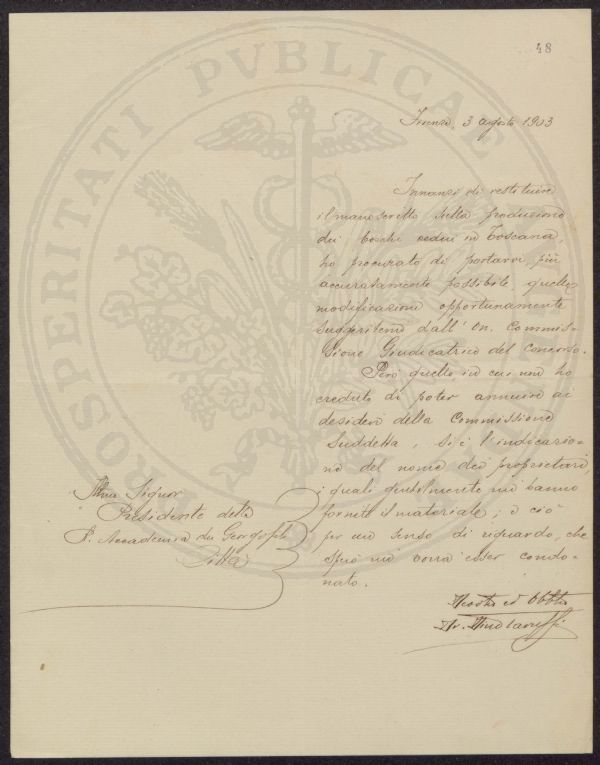 48
Firenze, 3 agosto 1903
Innanzi di restituire
il manoscritto sulla produzione
dei boschi cedui in Toscana,
ho procurato di portarvi, più
accuratamente possibile, quelle
modificazioni opportunamente
suggeritemi dall' On. Commis-
sione Giudicatrice del concorso.
Però quello, in cui non ho
creduto di poter annuire ai
desideri della Commissione
suddetta, si è l'indicazio-
ne del nome dei proprietari,
i quali gentilmente mi hanno
fornito il materiale; e ciò
per un senso di riguardo, che
spero mi vorrà esser condo-
nato.
Illmo Signor
Presidente della
R. Accademia dei Georgofili
Città
Devotmo ed Obblmo
Dr.
PROSPERITATI PVBLICAE